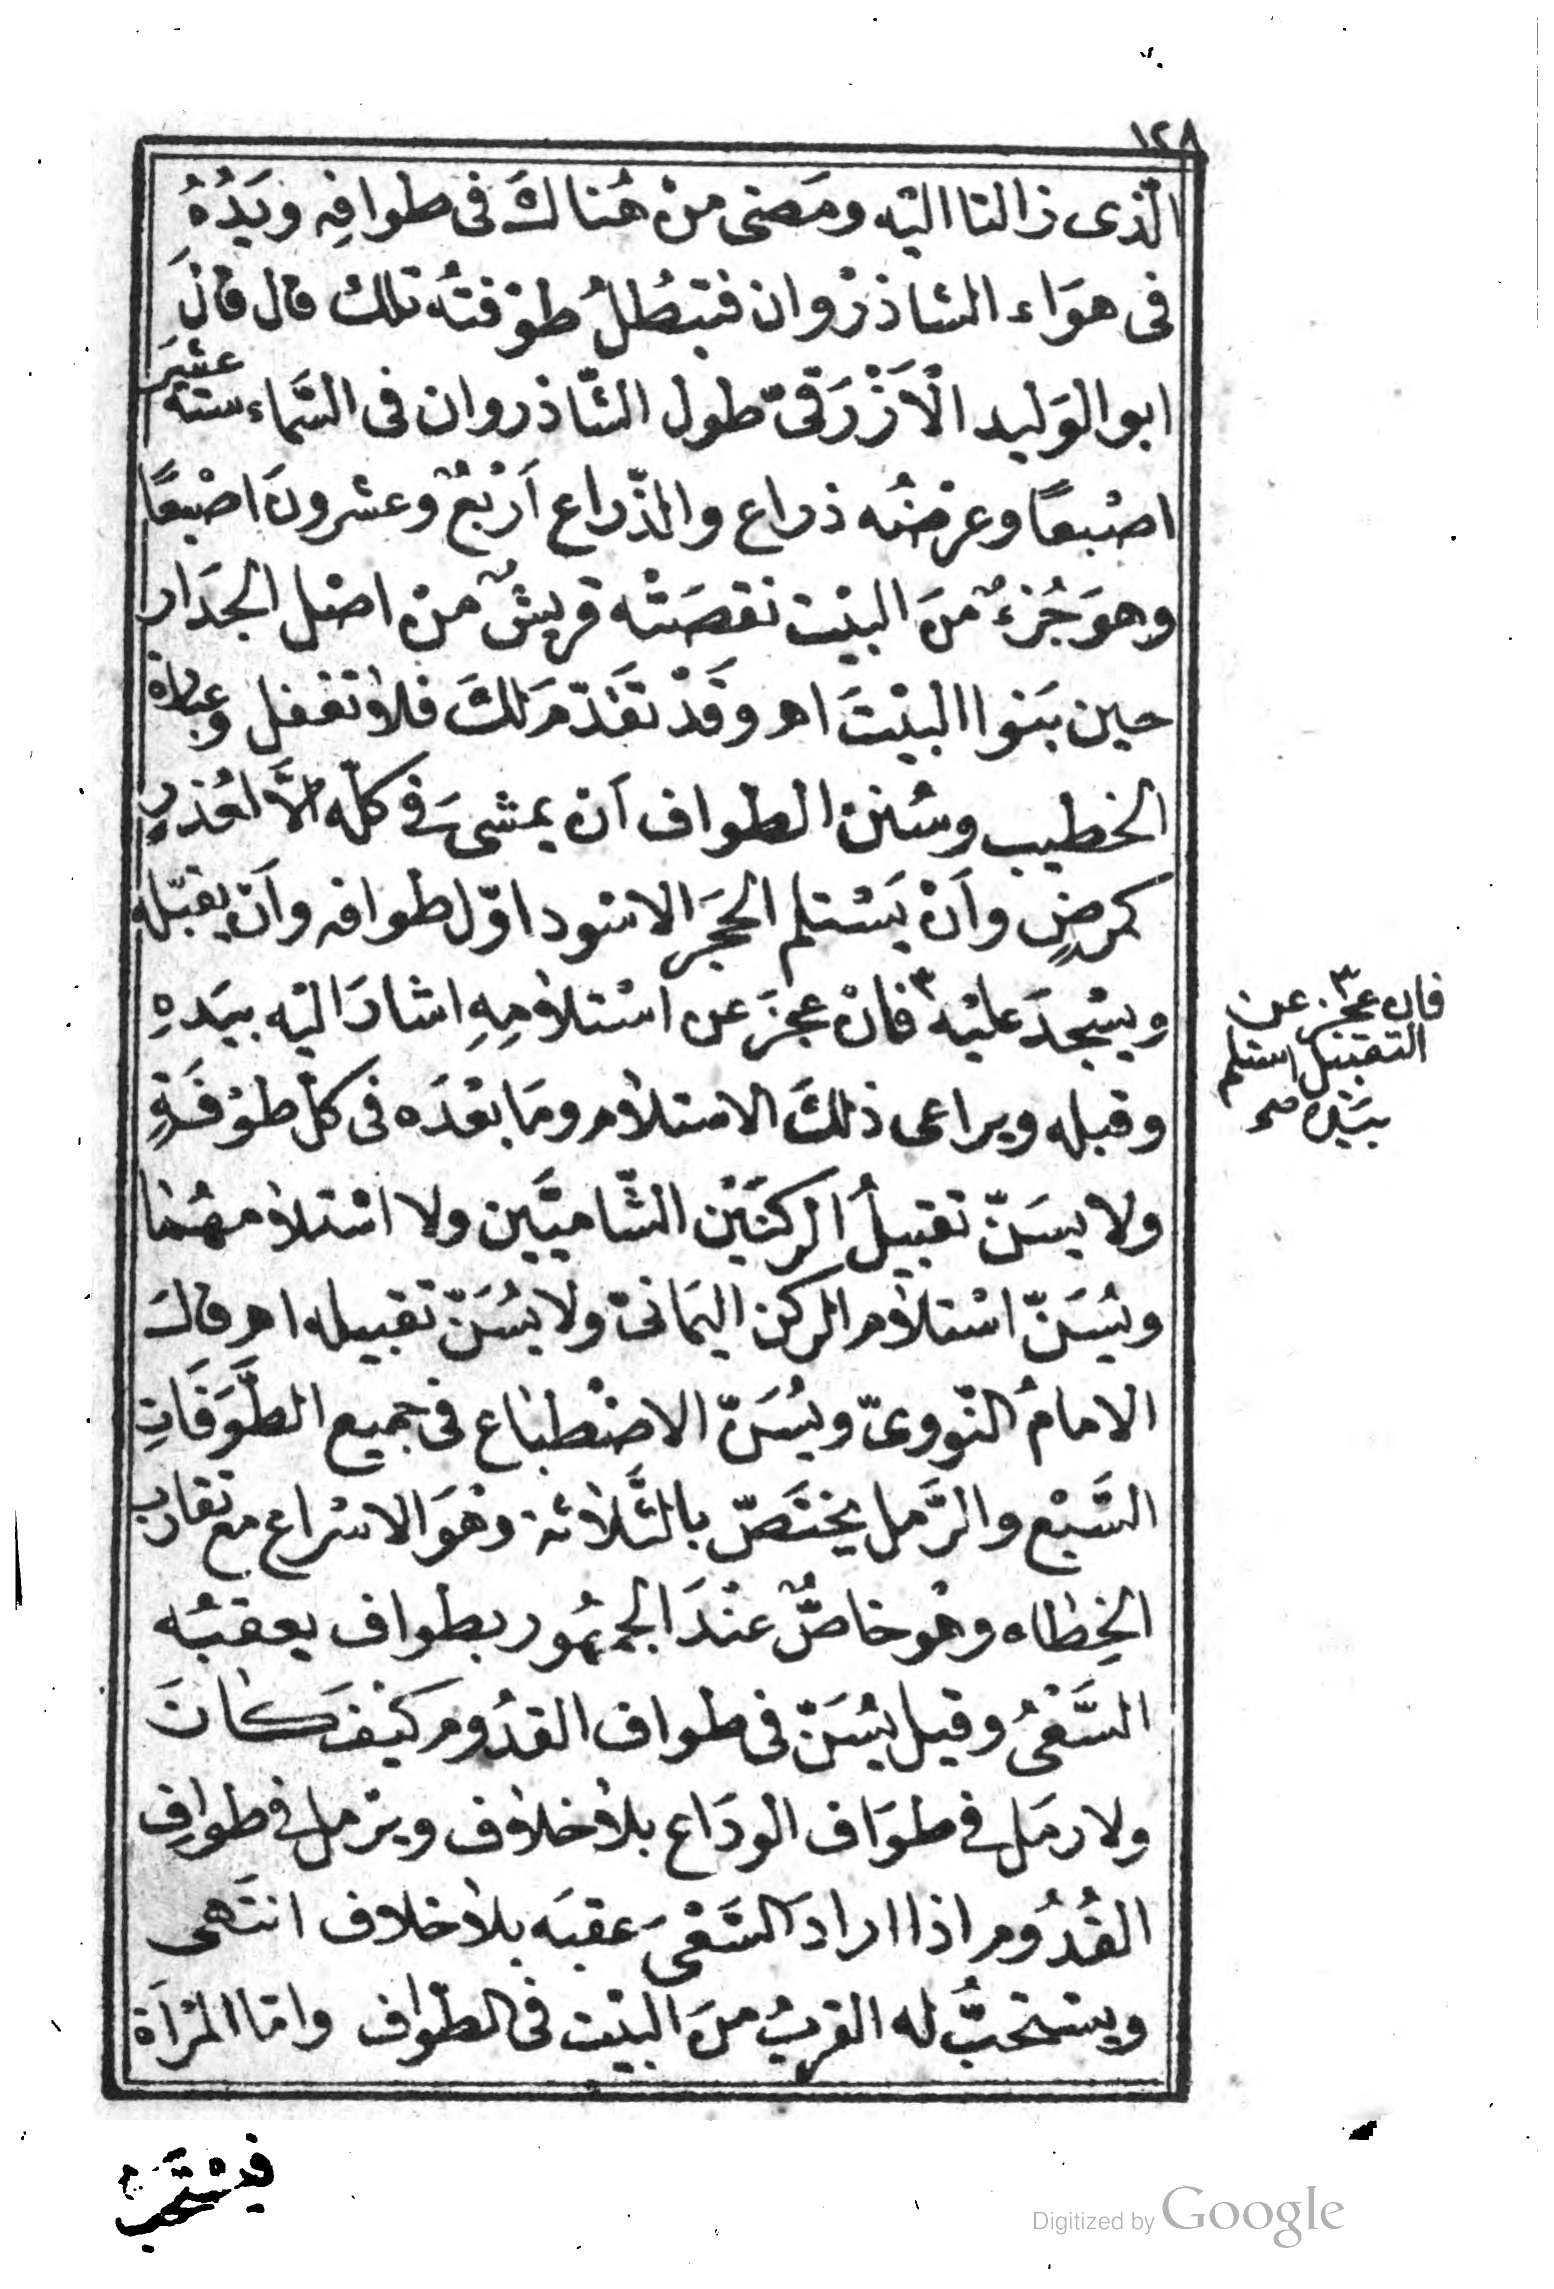 ١٢٨
الّذى زالتا اليْه ومَضى منْ هُناكَ فى طوافِه ويَدُهُ
فى هوَاء الشاذرْوان فتبطُلُ طوْفتُه تلك قال قالَ
ابو الوَليد الْاَزْرَقىّ طول الشّاذروان فى السَّماء ستة عشَر
اصْبعًا وعرْضُه ذراع والذّراع اَرْبعٌ وعشرونَ اصْبعًا
وهوَ جُزءٌ منَ البيْت نقصَتْه قريشٌ منْ اصْل الجدَار
حين بَنوا البيْتَ اهـ وقَدْ تقَدّم ذَلكَ فلا تغفل وعبارة
الخطيب وسُنن الطواف اَنْ يمشىَ فى كلّه الاَّ لعُذرٍ
كمرضٍ واَنْ يَسْتلم الحَجَر الاسْود اوّل طوافه واَن يقبّله
ويسْجدَ عليْه ٣ فانْ عجزَ عن اسْتلامِهِ اشارَ اليْه بيَدهِ
فان عجز ٣ عن
التقبيل استلم
بيَده صح
وقبله ويراعى ذلكَ الاستلام ومَا بعْدَه فى كلّ طوْفَةٍ
ولا يسَنّ تقبيلُ الركنَيْن الشّاميَّين ولا اسْتلامهُما
ويُسَنّ اسْتلام الركن اليَمانىّ ولا يُسَنّ تقبيله اهـ قالَ
الامامُ النّووىّ ويُسَنّ الاضْطباع فى جميع الطَّوَفَاتِ
السَّبْع والرَّمل يختَصّ بالثَّلاثة وهوَ الاسْراع مع تقارب
الخِطاه وهْو خاصٌّ عنْدَ الجمهُور بطواف يعقبُه
السَّعْىُ وقيل يُسَنّ فى طواف القدُوم كيْفَ كانَ
ولا رمَل فى طوَاف الودَاع بلا خلاف ويرْمل فى طوافِ
القُدُوم اذا اراد السَّعْىَ عقبَه بلا خلاف انتَهى
ويستحَبُّ له القربُ منَ البيْت فى الطّواف وامّا المرْاَة
فيسْتَحَبّ
Digitized by Google